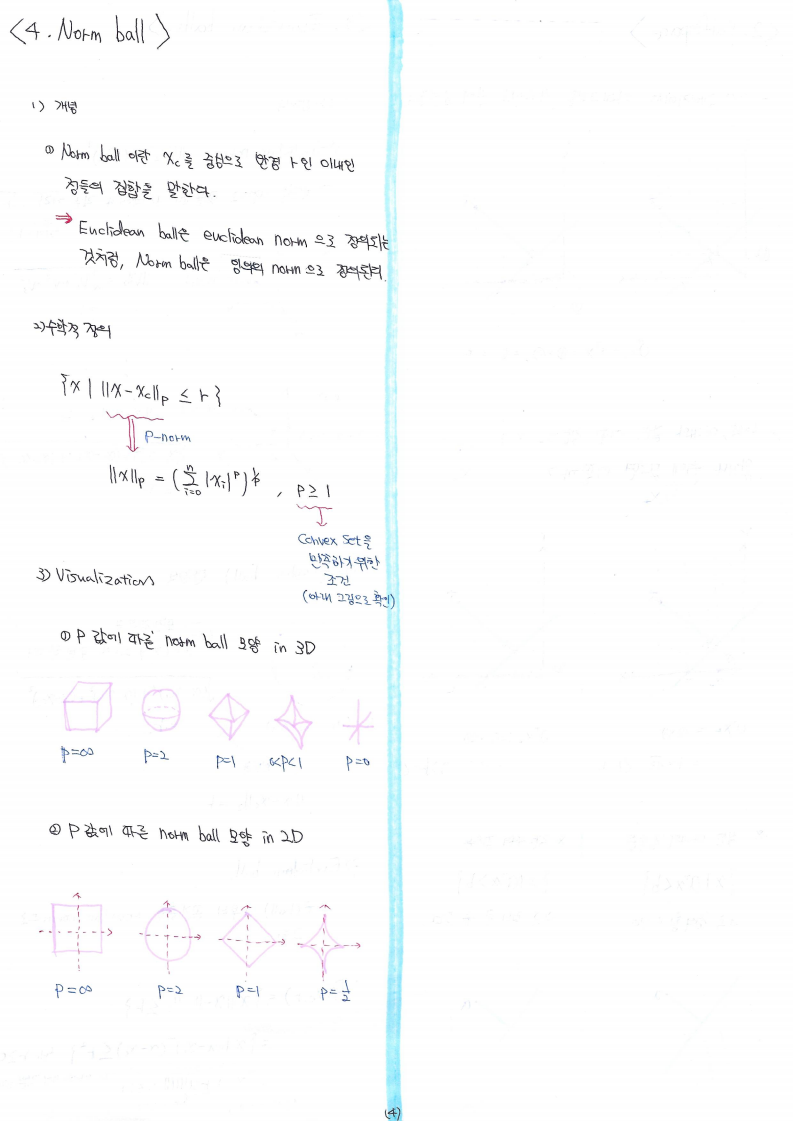 <4. Norm ball>
1) 개념
① Norm ball 이란 x_c를 중심으로 반경 r인 이내인
점들의 집합을 말한다.
⇒ Euclidean ball은 euclidean norm 으로 정의되는
것처럼, Norm ball은 임의의 norm으로 정의된다.
2) 수학적 정의
{x | ||x-x_c||_p ≤ r}
P-norm
||x||_p = (∑_{i=0}^{n} |x_i|^p)^{1/p} , P≥1
Convex Set을
만족하기 위한
조건
(아래 그림으로 확인)
3) Visualization
① P 값에 따른 norm ball 모양 in 3D
P=∞ P=2 P=1 0<P<1 P=0
② P 값에 따른 norm ball 모양 in 2D
P=∞ P=2 P=1 P=1/2
(4)